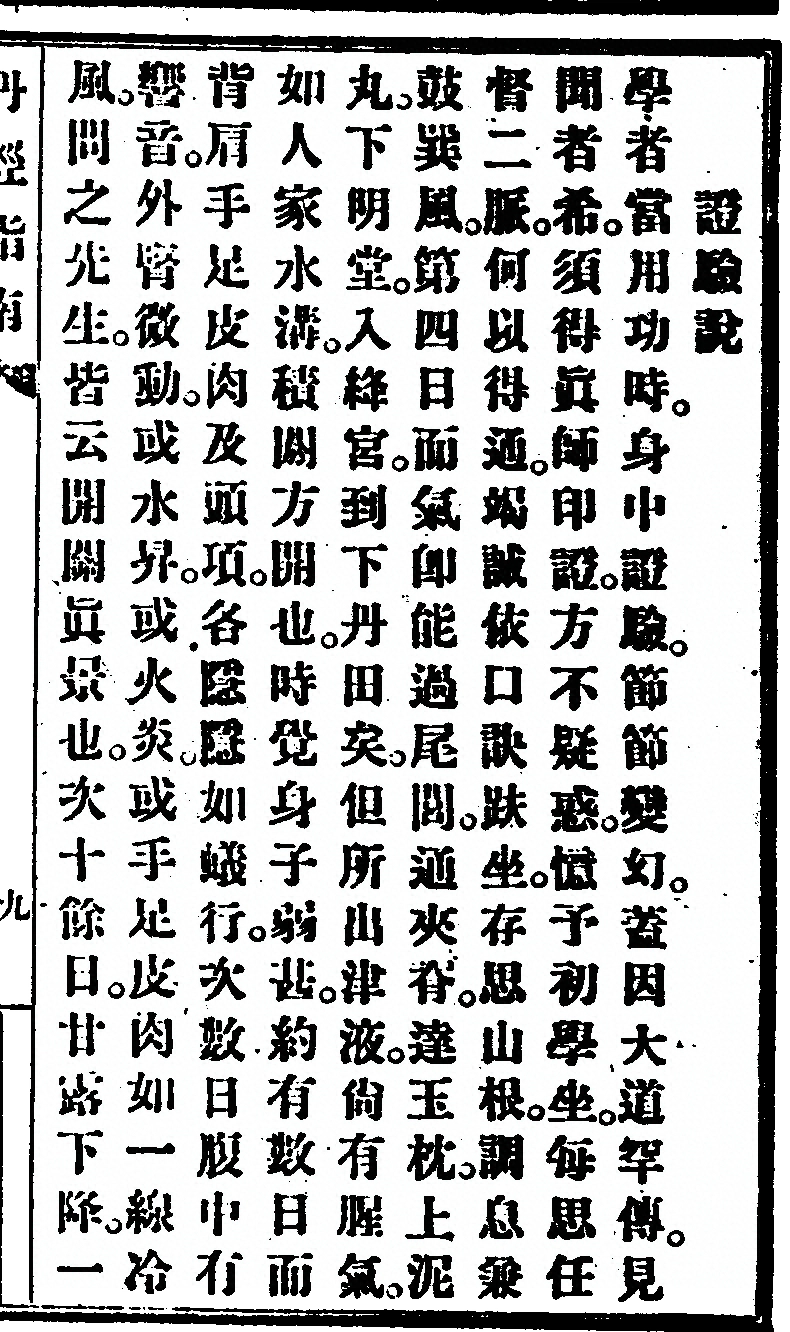 證驗說
學者當用功時。身中證驗。節節變幻。蓋因大道罕傳。見
聞者希。須得眞師印證。方不疑惑。憶予初學坐。每思任
督二脈。何以得通。竭誠依口訣趺坐。存思山根。調息兼
鼓巽風。第四日而氣卽能過尾閭。通夾脊。達玉枕。上泥
丸。下明堂。入絳宮。到下丹田矣。但所出津液。尙有腥氣。
如人家水溝。積閼方開也。時覺身子弱甚。約有數日而
背肩手足皮肉及頭項。各隱隱如蟻行。次數日腹中有
響音。外腎微動。或水昇。或火炎。或手足皮肉如一線冷
風。問之先生。皆云開關眞景也。次十餘日。甘露下降。一
丹經指南
九